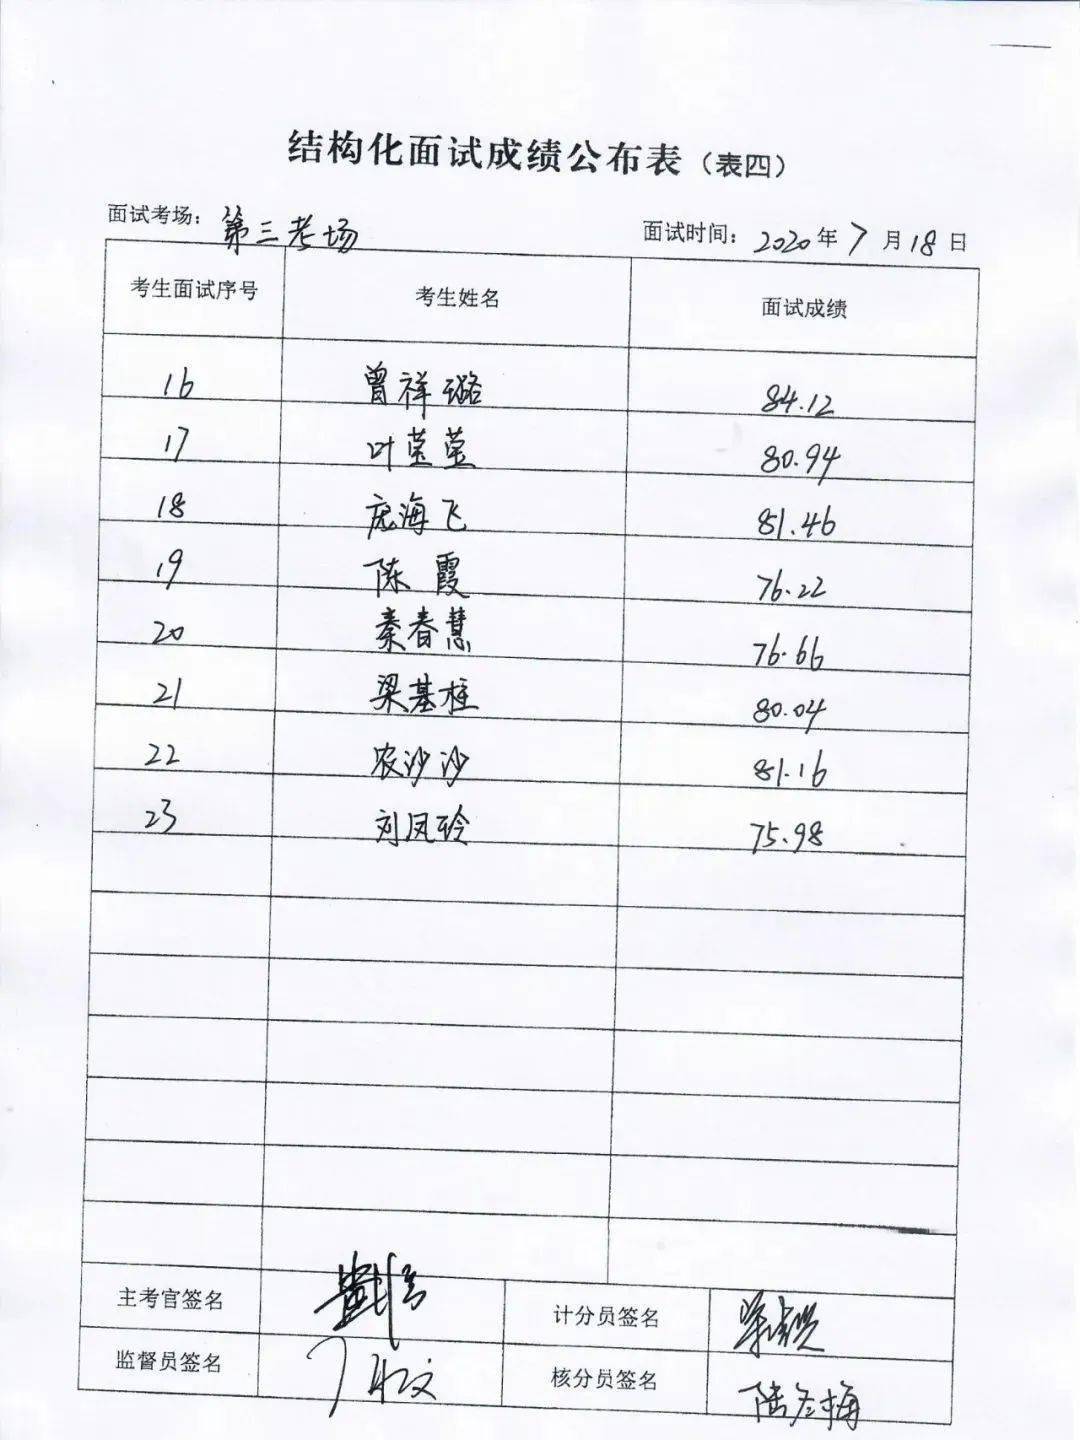 结构化面试成绩公布表（表四）
面试考场：第三考场 面试时间：2020年7月18日
考生面试序号 考生姓名 面试成绩
16 曾祥璐 84.12
17 叶莹莹 80.94
18 庞海飞 81.46
19 陈霞 76.22
20 秦春慧 76.66
21 梁基桂 80.04
22 农沙沙 81.16
23 刘凤玲 75.98
主考官签名 计分员签名
监督员签名 核分员签名